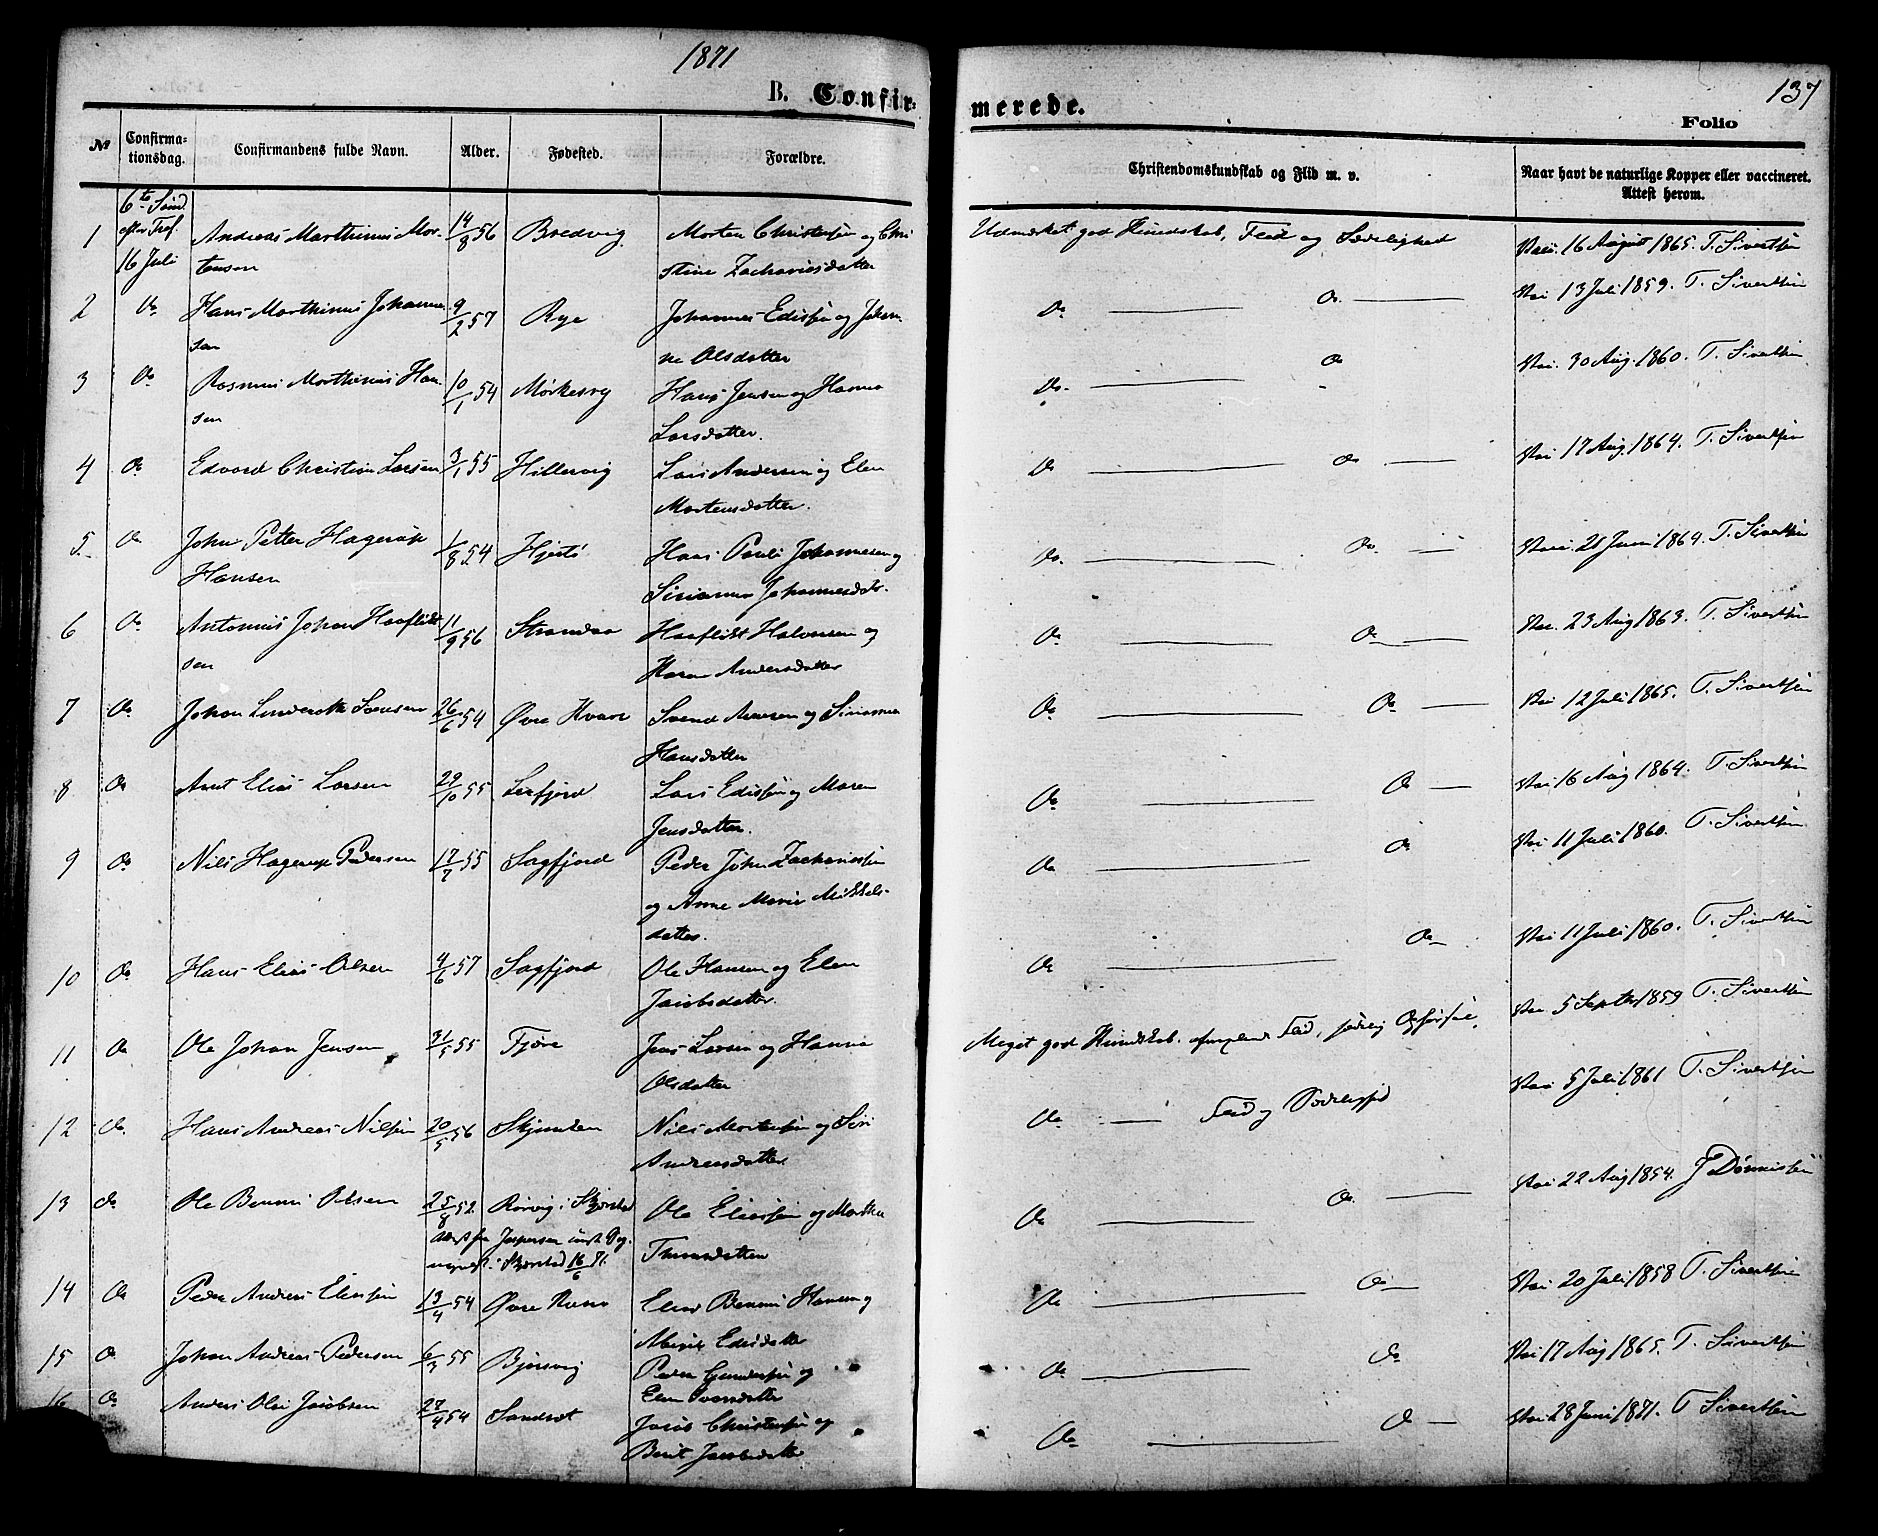 1871
B. Confir-
merede.
137
Folio
№
Confirma-
tionsdag.
Confirmandens fulde Navn.
Alder.
Fødested.
Forældre.
Christendomskundskab og Flid m. v.
Naar havt de naturlige Kopper eller vaccineret.
Attest herom.
6te Sønd.
efter Tref.
16 Juli
1 Andreas Marthinus Mor-
tensen
14/8 56 Bredvig Morten Christensen og Chri
stine Zachariasdatter
Udmærket god Kundskab, Flid og Sædelighed
Vac. 16 August 1865. T. Sivertsen
2 Do Hans Marthinus Johanne
sen
9/2 57 Rye Johannes Edissen og Johan-
na Olsdatter
Do Do
Vac 13 Juli 1859. T. Sivertsen
3 Do Rasmus Marthinus Han-
sen
10/1 54 Mørkesvig Hans Jensen og Hanna
Larsdatter.
Do. Do
Vac. 30 Aug. 1860. T. Sivertsen
4 Do Edvard Christian Larsen 3/1 55 Hillervig Lars Andersen og Elen
Mortensdatter.
Do Do
Vac 17 Aug. 1864. T. Sivertsen
5. Do John Petter Hagerup
Hansen
1/8 54 Hjertø Hans Pauli Johannesen og
Sirianna Johannesdtr.
Do. Do.
Vac. 21 Juni 1864. T. Sivertsen
6 Do Antonius Johan Haaflidt
sen
11/9 56 Strandaa Haaflidt Halvorsen og
Karen Andersdatter
Do Do
Vac. 23 Aug 1863. T. Sivertsen
7 Do Johan Svensen 26/6 54 Øvre Kvarv Svend Arnesen og Sirianna
Hansdatter
Do Do
Vac 12 Juli 1865. T. Sivertsen
8 Do Arnt Elias Larsen 29/10 55 Leifjord Lars Edissen og Maren
Jensdatter.
Do Do
Vac 16 Aug 1864. T. Sivertsen
9 Do Nils Hagerup Pedersen 17/7 55 Sagfjord Peder John Zachariassen
og Anne Marie Mikkels-
datter.
Do Do
Vac 11 Juli 1860. T. Sivertsen
10 Do Hans Elias Olsen 4/6 57 Sagfjord Ole Hansen og Elen
Jacobsdatter.
Do Do
Vac 11 Juli 1860. T. Sivertsen
11 Do Ole Johan Jensen 31/5 55 Fjære Jens Larsen og Hanna
Olsdatter
Meget god Kundskab, Flid,
Vac 5 Septbr 1859 T. Sivertsen
12 Do Hans Andreas Nilsen 20/5 56 Skjomten Nils Mortensen og Siri
Andreasdatter
Do Flid og Sædelighed
Vac 5 Juli 1861 T. Sivertsen
13 do Ole Benoni Olsen 25/8 52. Rørvig i Skjerstad Ole Eliassen og Martha
Thomasdatter
Attest fra Jespersen
Skjerstad 16/6 71.
Do Do.
Vac 22 Aug 1854. J Dønnesen
14 Do Peder Andreas Eliassen 13/4 54 Øvre Elias Benoni Hansen og
Edisdatter
Do Do
Vac 20 Juli 1858 T. Sivertsen
15 Do Johan Andreas Pedersen 6/3 55 Bjørsvig Peder Gundersen og
Elen Svensdatter
Do Do
Vac 17 Aug 1865. T. Sivertsen
16 Do Anders Olai Jacobsen 27/4 54 Sandset Jacob Christensen og
Berit Jacobsdatter
Do Do
Vac 28 Juni 1871. T Sivertsen